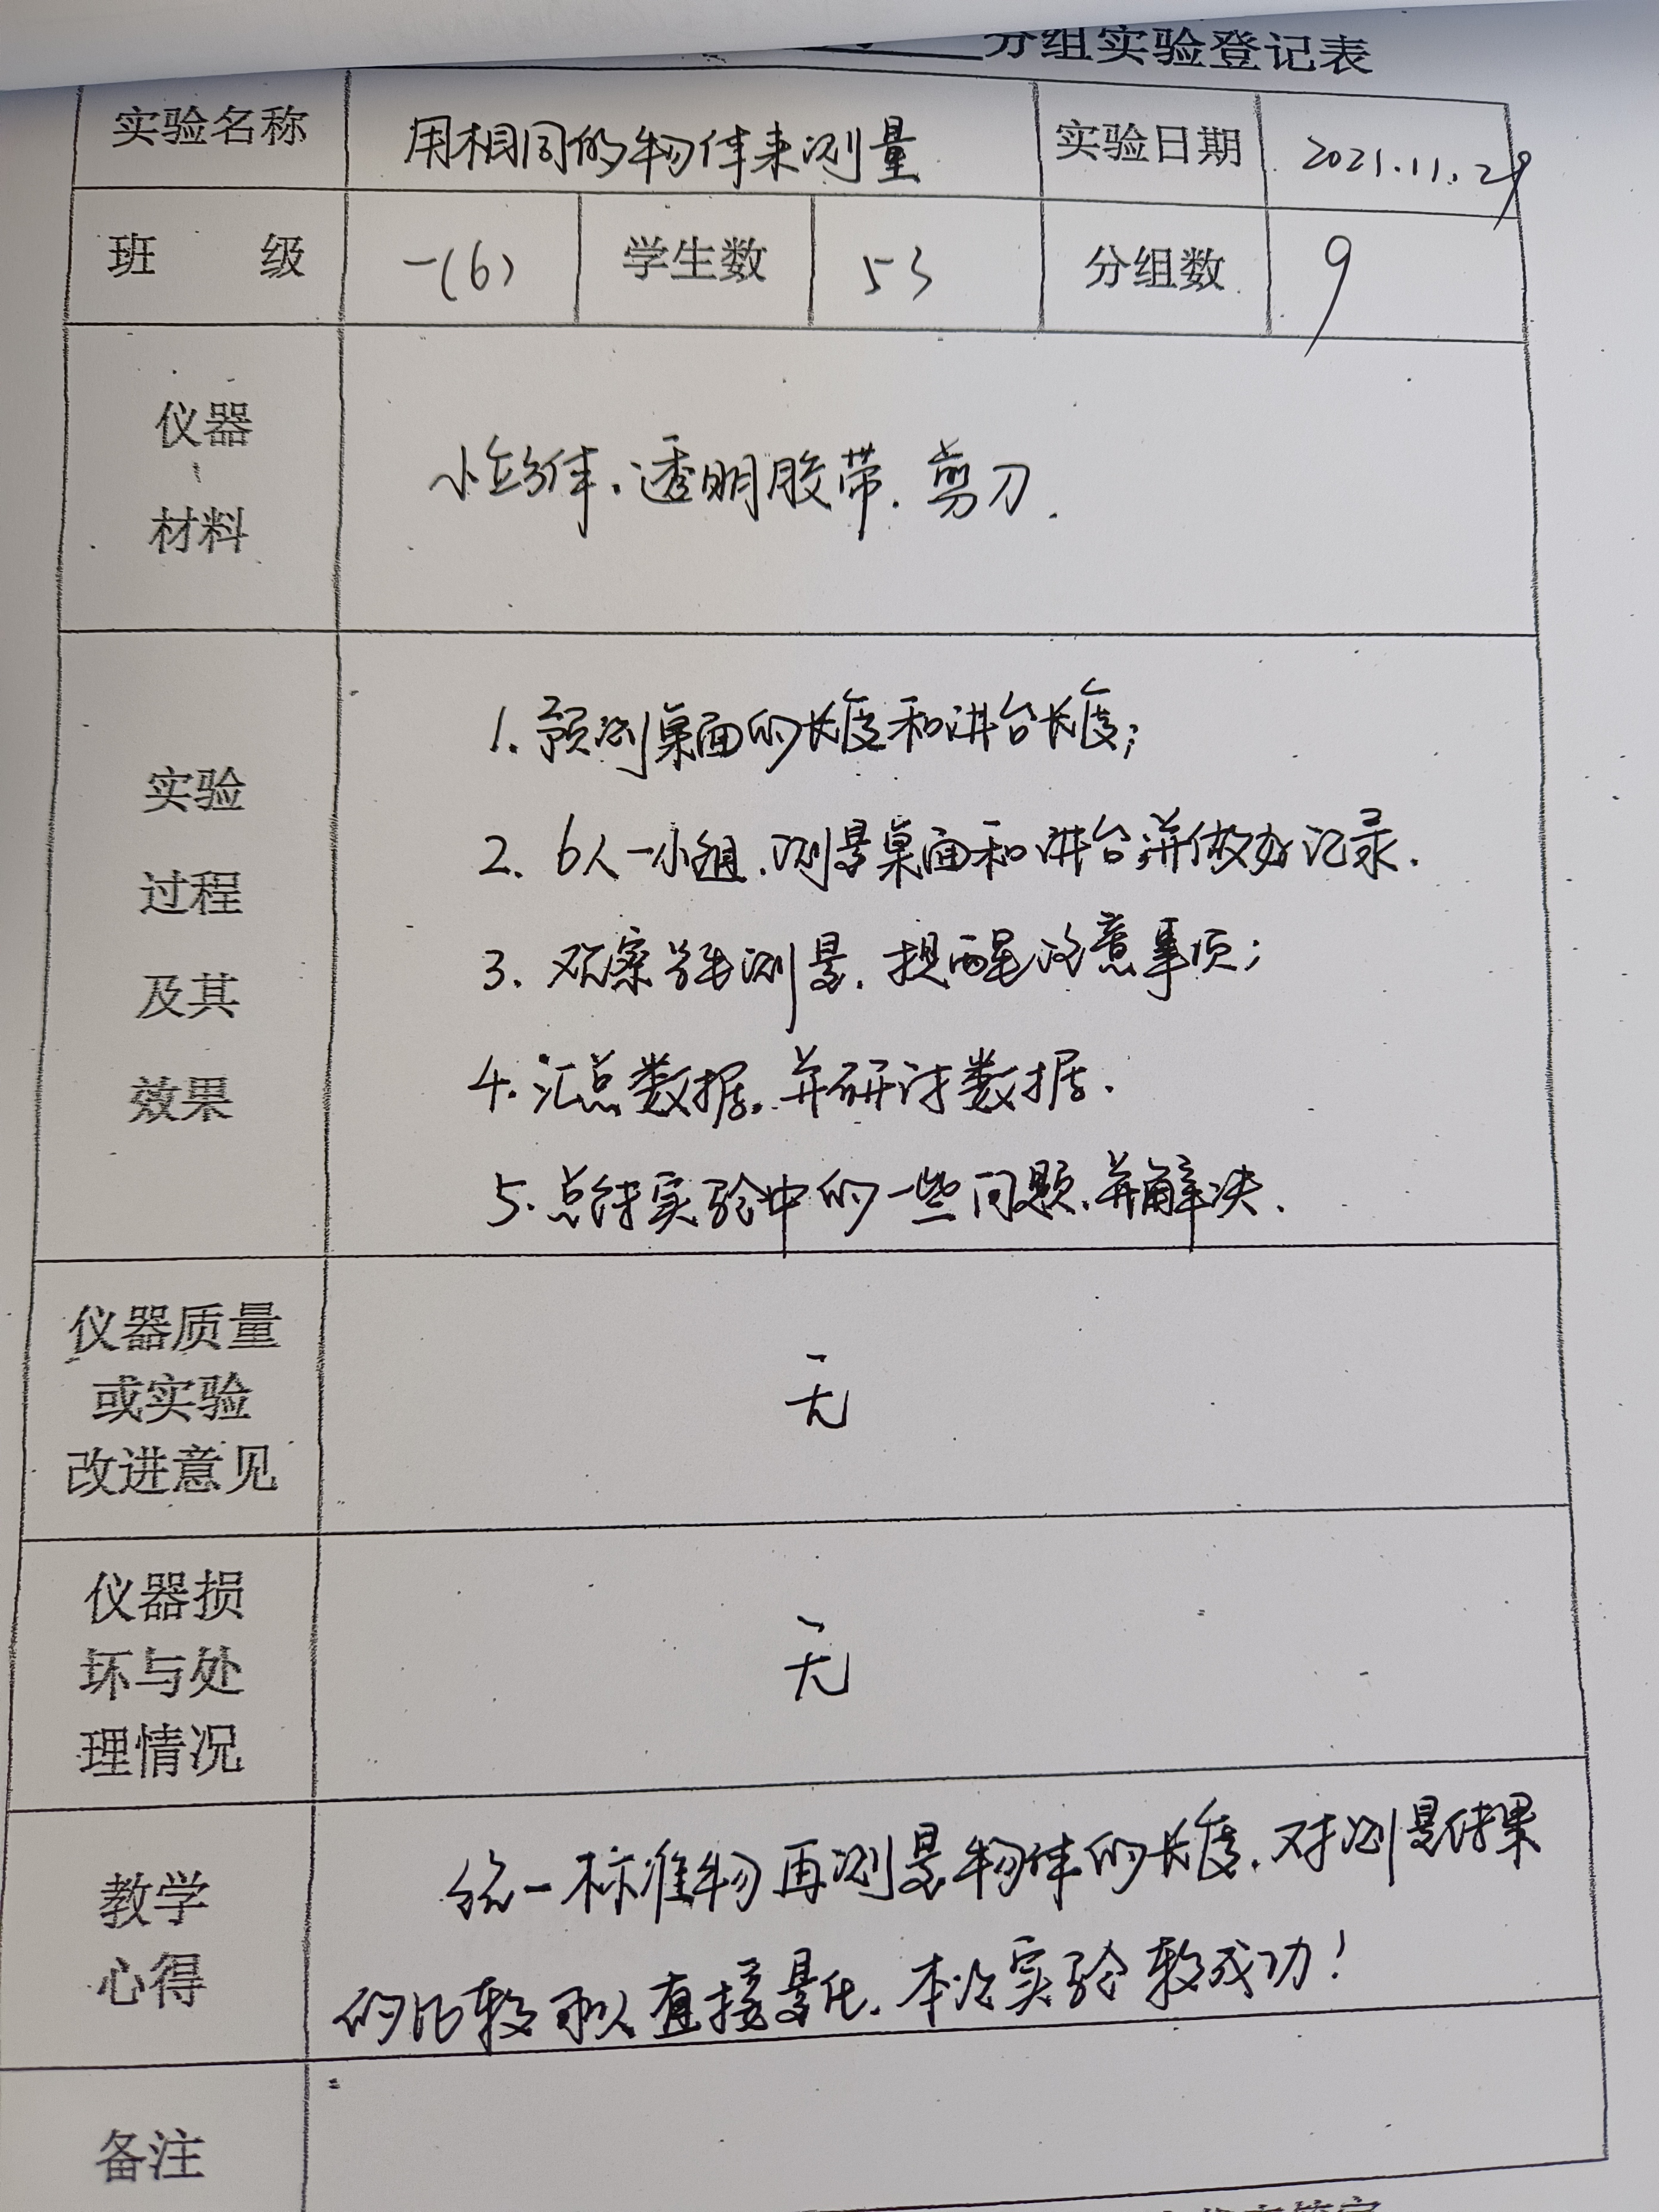 分组实验登记表
实验名称 用相同的物体来测量 实验日期 2021.11.29
班 级 一(6) 学生数 53 分组数 9
仪器
材料
小立方体.透明胶带.剪刀.
实验
过程
及其
效果
1.预测桌面的长度和讲台长度;
2.6人一小组.测量桌面和讲台,并做好记录.
3.观察学生测量.提醒注意事项;
4.汇总数据.并研讨数据.
5.总结实验中的一些问题.并解决.
仪器质量
或实验
改进意见
无
仪器损
坏与处
理情况
无
教学
心得
统一标准物再测量物体的长度.对测量结果
的比较可以直接量化.本次实验较成功!
备注